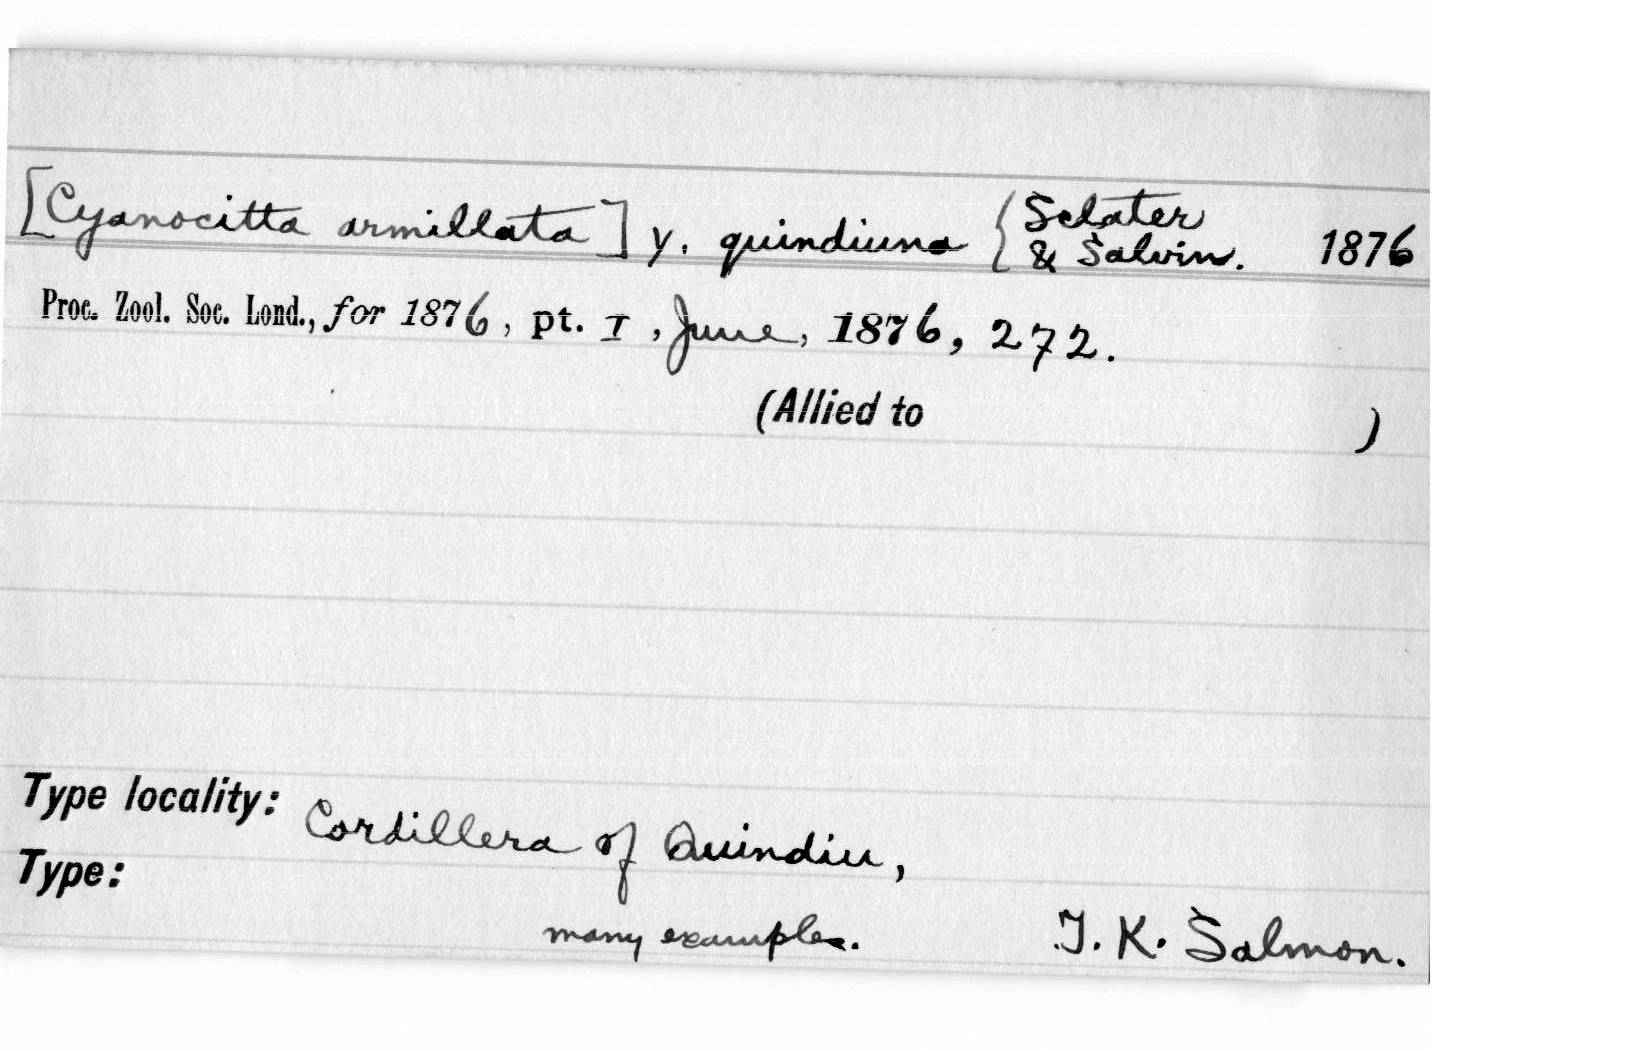 [Cyanocitta armillata] γ. quindiuna { Sclater
& Salvin. 1876
Proc. Zool. Soc. Lond., for 1876, pt. I, June, 1876, 272.
(Allied to )
Type locality: Cordillera of Quindiu,
Type:
many examples. T. K. Salmon.